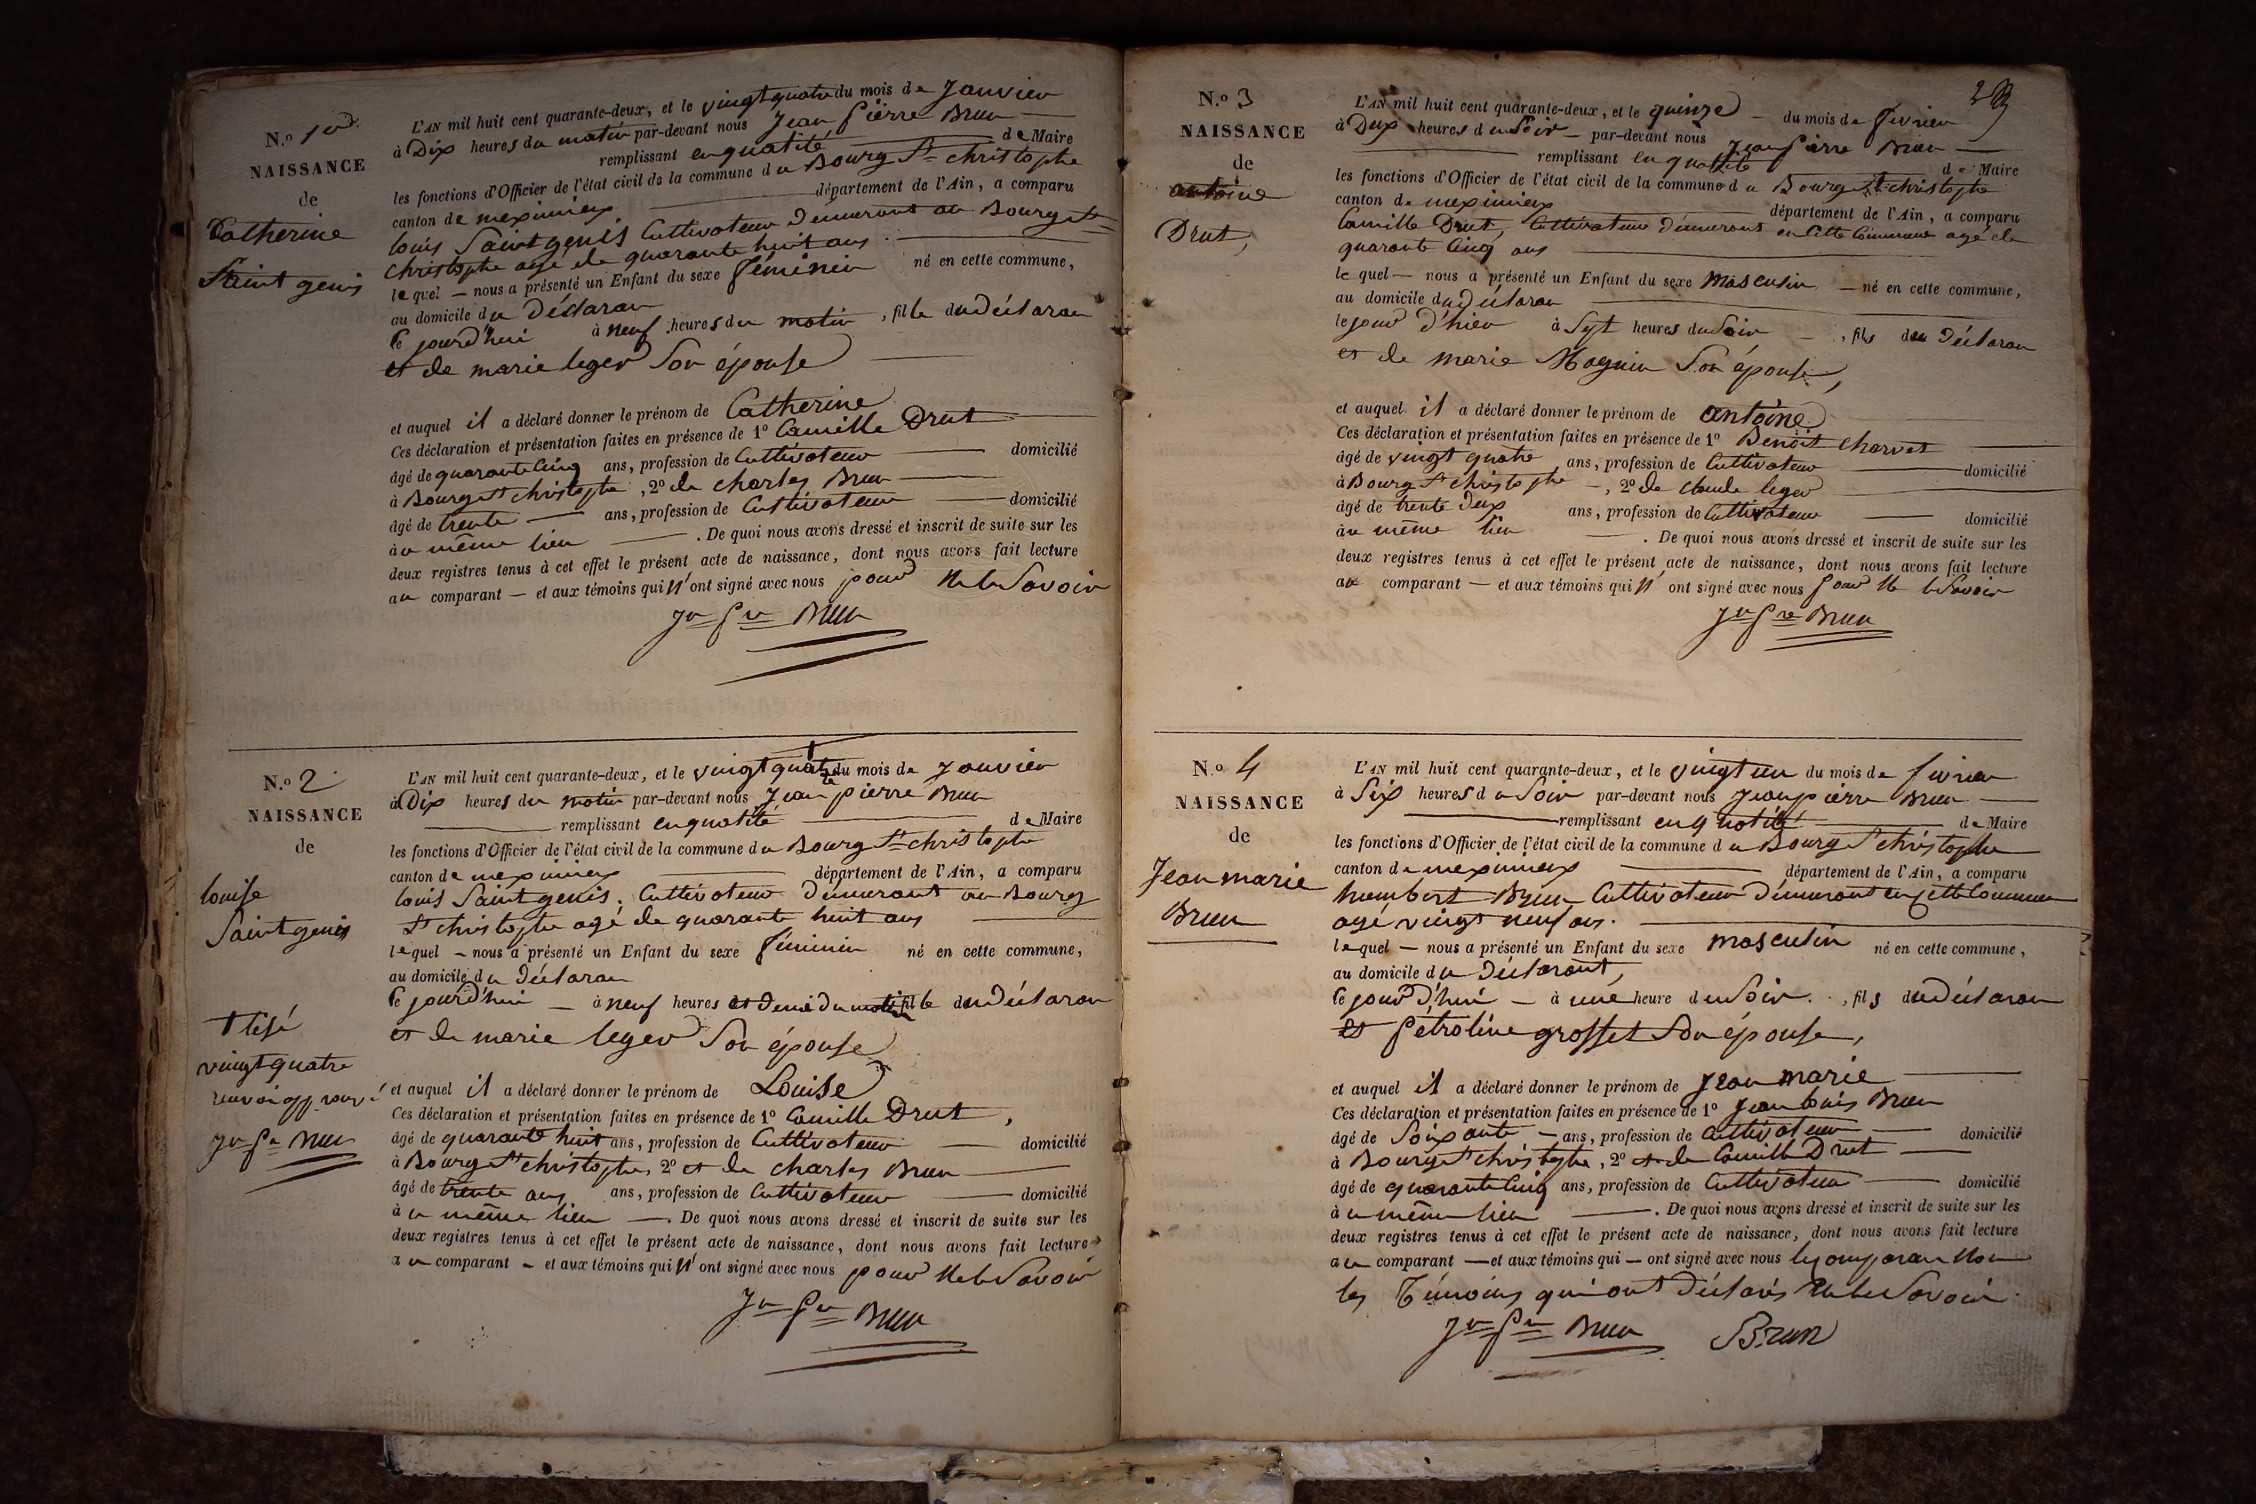 N.o 1er
NAISSANCE
de
Catherine
Saint genis
L'AN mil huit cent quarante-deux, et le vingt quatre du mois de Janvier
à Dix heures du matin par-devant nous Jean pierre Brun
remplissant en qualité de Maire
les fonctions d'Officier de l'état civil de la commune du Bourg St christophe
canton de meximieux département de l'Ain, a comparu
louis Saint genis Cultivateur demeurant au Bourg St
christophe agé de quarante huit ans
lequel — nous a présenté un Enfant du sexe féminin né en cette commune,
au domicile du Déclaran
le jourd'hui à neuf heures du matin, fille du déclaran
et de marie leger Son épouse
et auquel il a déclaré donner le prénom de Catherine
Ces déclaration et présentation faites en présence de 1o Camille Drut
âgé de quarante Cinq ans, profession de Cultivateur domicilié
à Bourg St christophe, 2o de charles Brun
âgé de trente — ans, profession de Cultivateur domicilié
à u même lieu — . De quoi nous avons dressé et inscrit de suite sur les
deux registres tenus à cet effet le présent acte de naissance, dont nous avons fait lecture
au comparant — et aux témoins qui n'ont signé avec nous pour ne le Savoir
Jn Pre Brun
N.o 2
NAISSANCE
de
louise
Saint genis
L'AN mil huit cent quarante-deux, et le vingt quatre du mois de Janvier
à Dix heures du matin par-devant nous Jean pierre Brun
remplissant en qualité de Maire
les fonctions d'Officier de l'état civil de la commune du Bourg St christophe
canton de meximieux département de l'Ain, a comparu
louis Saint genis. Cultivateur demeurant au Bourg
St christophe agé de quarante huit ans
lequel — nous a présenté un Enfant du sexe féminin né en cette commune,
au domicile du déclaran
le jourd'hui — à neuf heures et demi du matin fille du déclaran
et de marie leger Son épouse
vingt quatre
renvoi approuvé
Jn Pre Brun
et auquel il a déclaré donner le prénom de Louise
Ces déclaration et présentation faites en présence de 1o Camille Drut,
âgé de quarante huit ans, profession de Cultivateur — domicilié
à Bourg St christophe, 2o et de charles Brun
âgé de trente ans ans, profession de Cultivateur — domicilié
à u même lieu — . De quoi nous avons dressé et inscrit de suite sur les
deux registres tenus à cet effet le présent acte de naissance, dont nous avons fait lecture
au comparant — et aux témoins qui n'ont signé avec nous pour ne le Savoir
Jn Pre Brun
N.o 3
NAISSANCE
de
antoine
Drut,
L'AN mil huit cent quarante-deux, et le quinze — du mois de fevrier
à Deux heures du Soir — par-devant nous Jean pierre Brun —
remplissant en qualité de Maire
les fonctions d'Officier de l'état civil de la commune du Bourg St christophe
canton de meximieux département de l'Ain, a comparu
Camille Drut, Cultivateur demeurant en Cette Commune agé de
quarante Cinq ans
lequel — nous a présenté un Enfant du sexe masculin — né en cette commune,
au domicile du déclaran
le jour d'hier à Sept heures du Soir —, fils du déclaran
et de marie Magnin Son épouse,
et auquel il a déclaré donner le prénom de antoine
Ces déclaration et présentation faites en présence de 1o Benoit charvet
âgé de vingt quatre ans, profession de Cultivateur domicilié
à Bourg St christophe —, 2o de claude leger
âgé de trente Deux ans, profession de Cultivateur — domicilié
à u même lieu — . De quoi nous avons dressé et inscrit de suite sur les
deux registres tenus à cet effet le présent acte de naissance, dont nous avons fait lecture
au comparant — et aux témoins qui n'ont signé avec nous pour ne le Savoir
Jn Pre Brun
N.o 4
NAISSANCE
de
Jean marie
Brun
L'AN mil huit cent quarante-deux, et le vingt un du mois de fevrier
à Six heures du Soir par-devant nous Jean pierre Brun —
remplissant en qualité de Maire
les fonctions d'Officier de l'état civil de la commune du Bourg St christophe
canton de meximieux département de l'Ain, a comparu
humbert Brun Cultivateur demeurant en Cette Commune
agé vingt neuf ans.
lequel — nous a présenté un Enfant du sexe masculin né en cette commune,
au domicile du déclarant,
le jour d'hui — à une heure du Soir, fils du déclaran
et Pétroline grosset Son épouse,
et auquel il a déclaré donner le prénom de Jean marie
Ces déclaration et présentation faites en présence de 1o Jean louis Brun
âgé de Soixante — ans, profession de Cultivateur — domicilié
à Bourg St christophe, 2o et de Camille Drut
âgé de quarante Cinq ans, profession de Cultivateur — domicilié
à u même lieu — . De quoi nous avons dressé et inscrit de suite sur les
deux registres tenus à cet effet le présent acte de naissance, dont nous avons fait lecture
au comparant — et aux témoins qui — ont signé avec nous le comparan non
les Témoins qui ont déclarés ne le Savoir.
Jn Pre Brun Brun